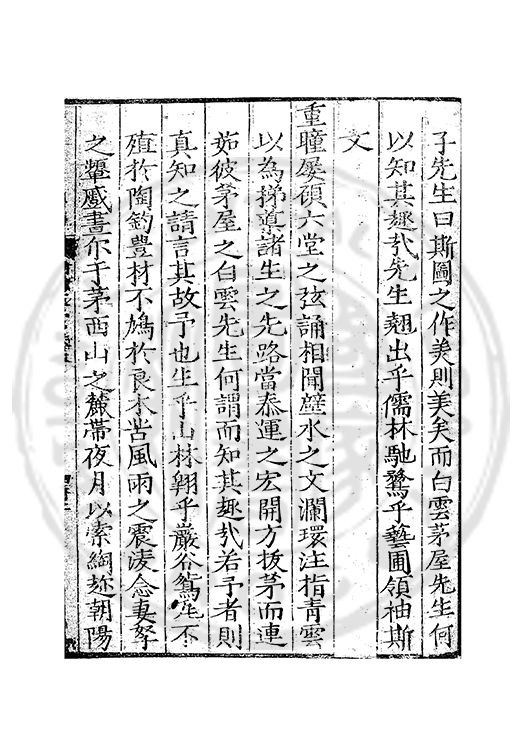 子先生曰斯圖之作美則美矣而白雲茅屋先生何
以知其趣㢤先生翹出乎儒林馳騖乎藝圃領袖斯
文
重瞳屢碩六堂之弦誦相聞壁水之文瀾環注指青雲
以為梯導諸生之先路當泰運之宏開方拔茅而連
茹彼茅屋之白雲先生何謂而知其趣㢤若予者則
真知之請言其故予也生乎山林翔乎巖谷駕寉不
殖扵陶鈞豊材不鳩扵良木苦風雨之震凌念妻孥
之顰蹙晝尔于茅西山之麓帶夜月以索綯趂朝陽